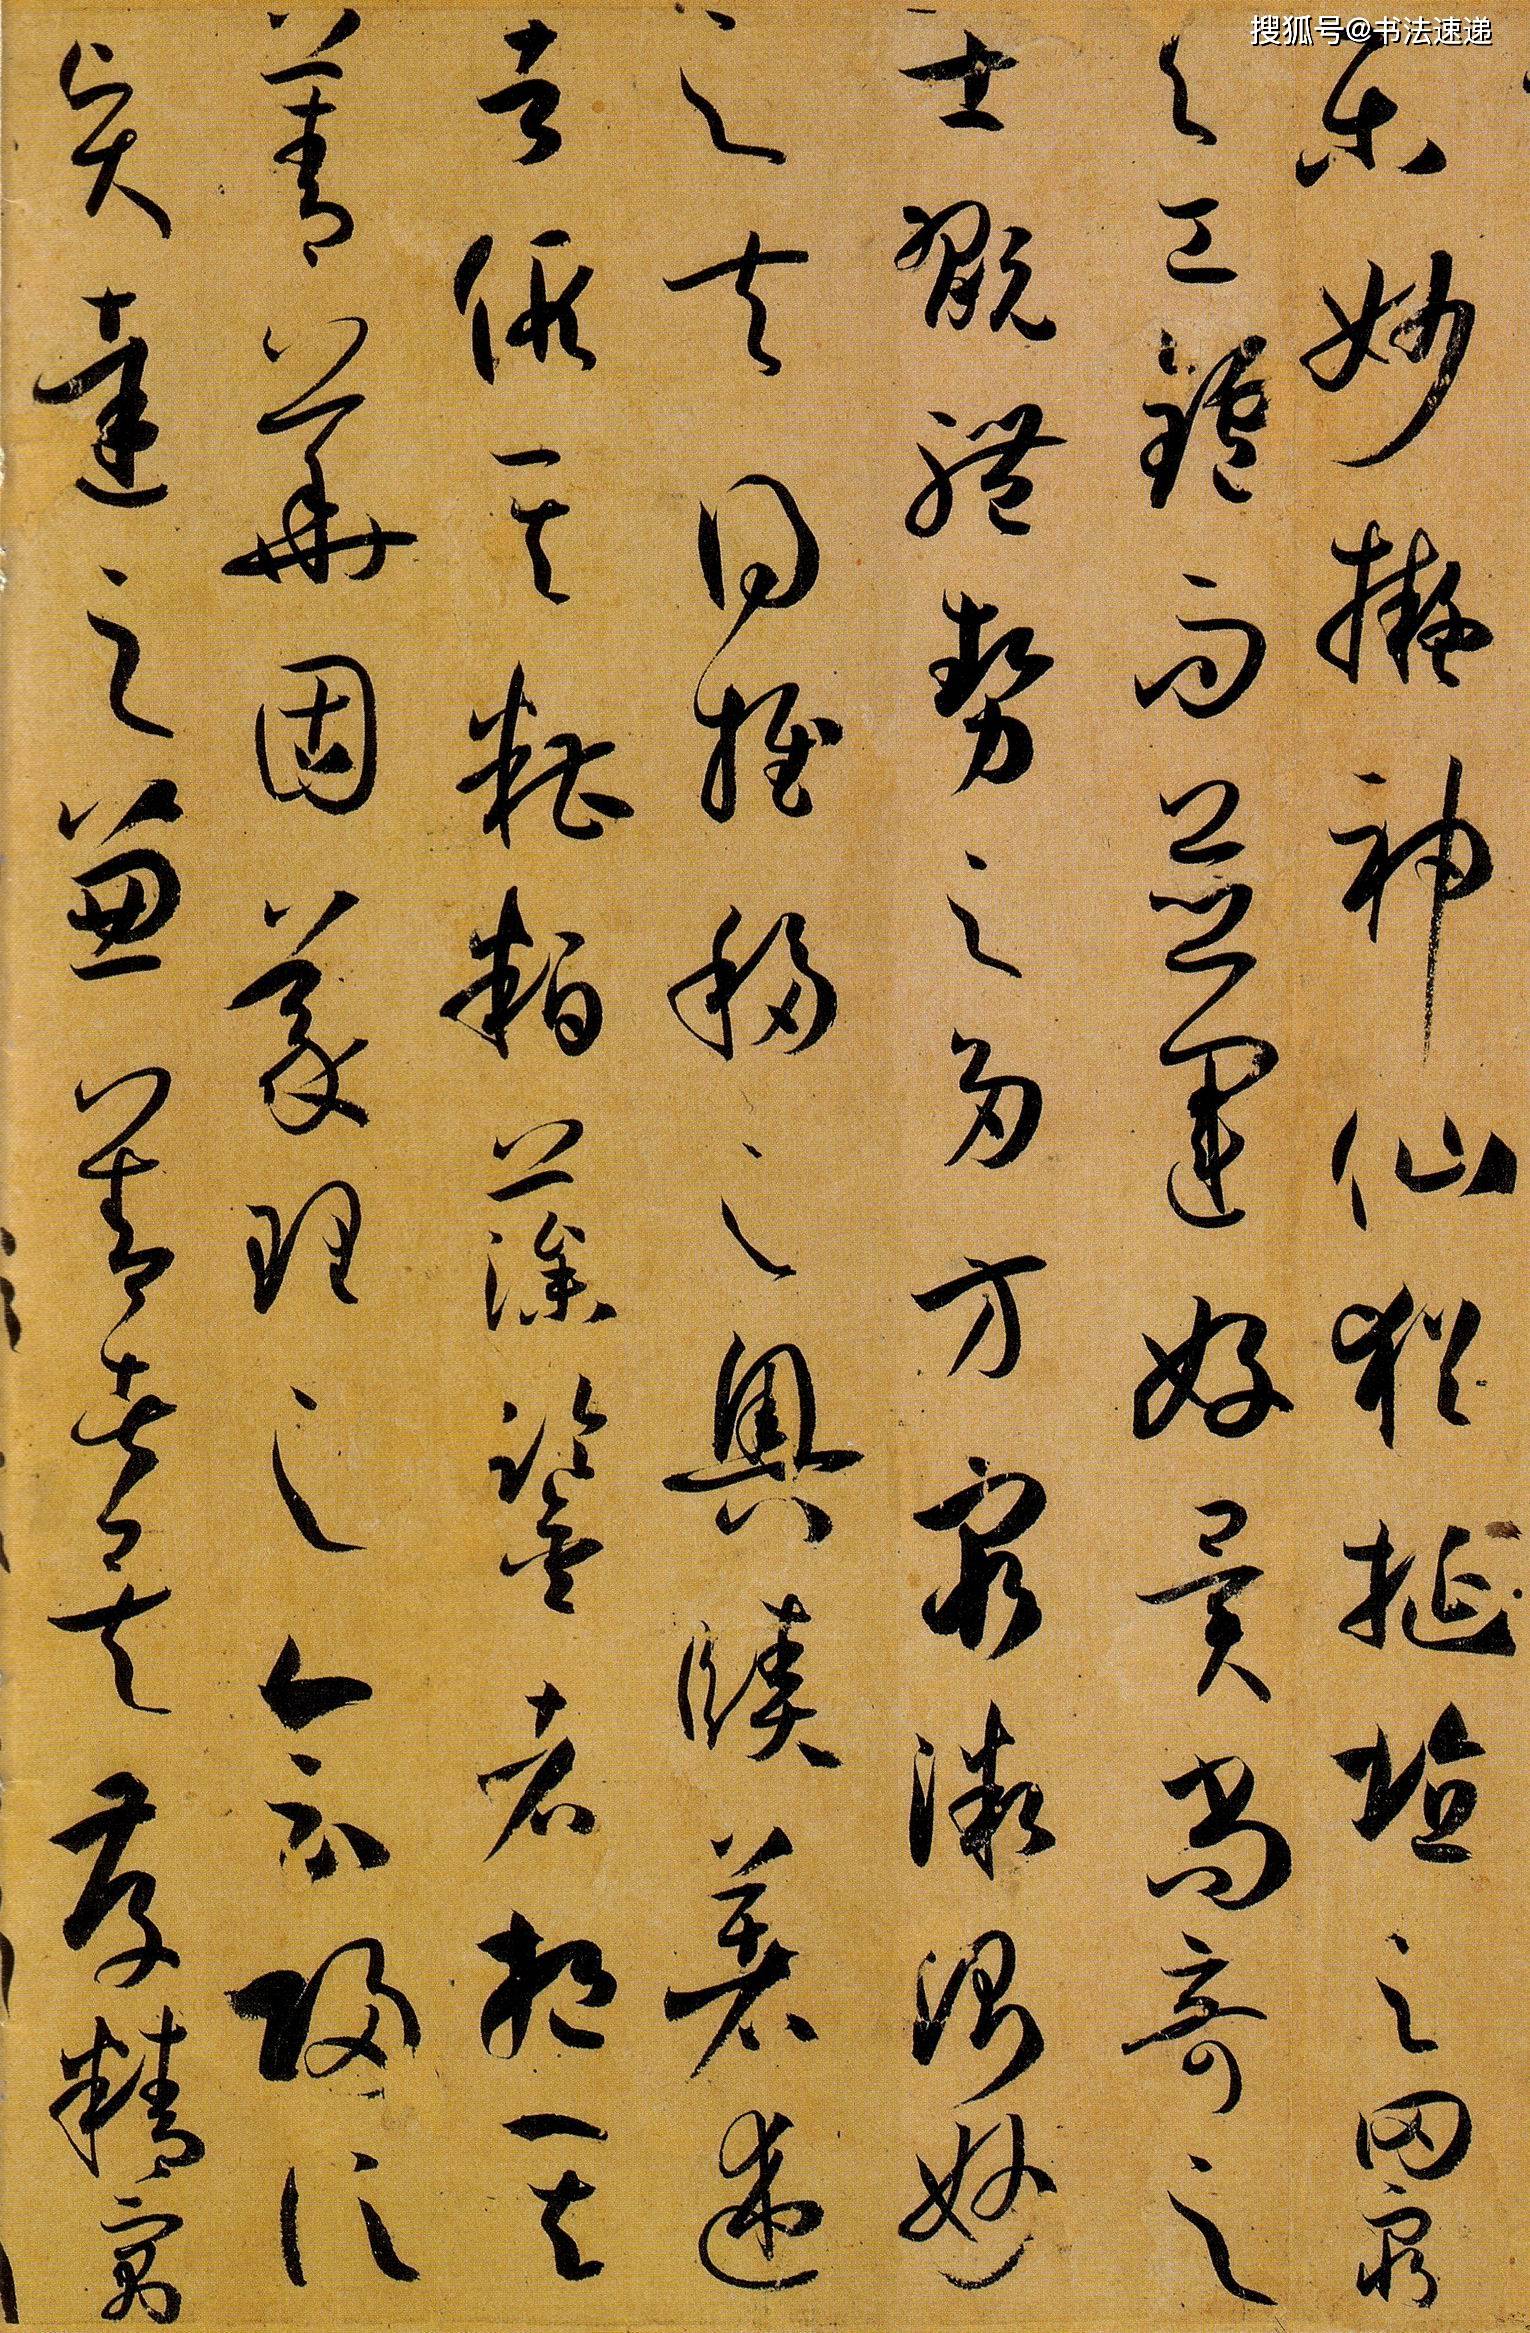 搜狐号@书法速递
樂妙擬神仙猶埏埴之罔窮
与工鑪而並運好異尚奇之
士翫體勢之多方窮微測妙
之夫得推移之奧賾著述
者假其糟粕藻鑒者挹其
菁華固義理之會歸信
賢達之兼善者矣存精寓